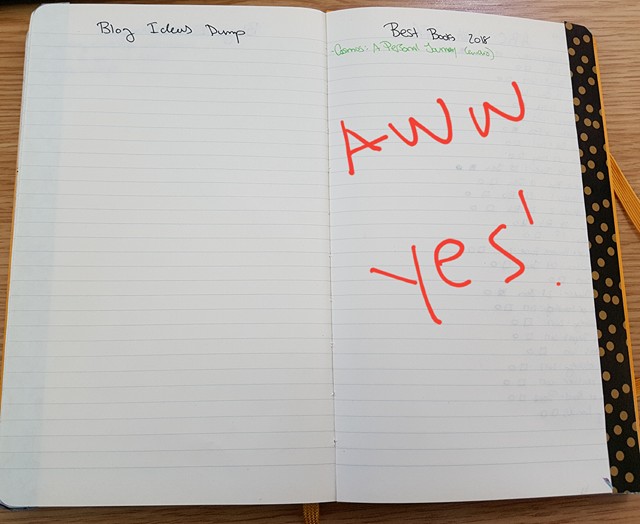 Blog Ideas Dump
Best Books 2018
-Cosmos: A Personal Journey (audio)
AWW
yes!